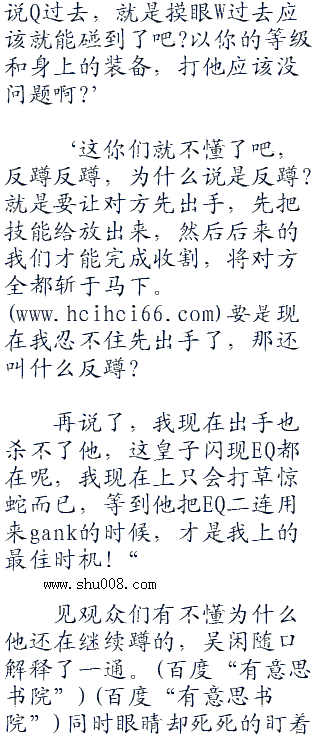 说Q过去，就是摸眼W过去应
该就能碰到了吧?以你的等级
和身上的装备，打他应该没
问题啊?’
‘这你们就不懂了吧，
反蹲反蹲，为什么说是反蹲?
就是要让对方先出手，先把
技能给放出来，然后后来的
我们才能完成收割，将对方
全都斩于马下。
(www.hcihci66.com)要是现
在我忍不住先出手了，那还
叫什么反蹲?
再说了，我现在出手也
杀不了他，这皇子闪现EQ都
在呢，我现在上只会打草惊
蛇而已，等到他把EQ二连用
来gank的时候，才是我上的
最住时机！“
www.shu008.com
见观众们有不懂为什么
他还在继续蹲的，吴闲随口
解释了一通。(百度“有意思
书院”)(百度“有意思书
院”)同时眼睛却死死的盯着